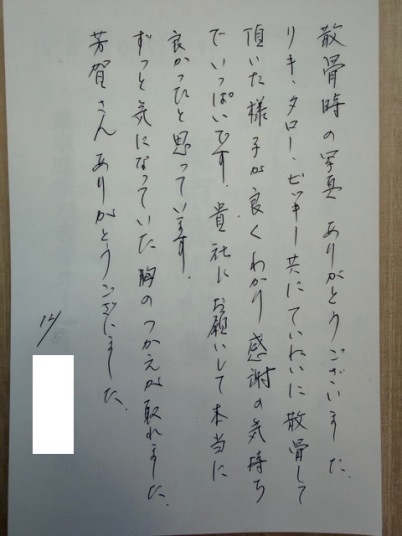 散骨時の写真 ありがとうございました.
リキ・タロー・ビッキー共にていねいに散骨して
頂いた様子が良くわかり感謝の気持ち
でいっぱいです. 貴社にお願いして本当に
良かったと思っています.
ずっと気になっていた胸のつかえが取れました.
芳賀さんありがとうございました.
12/